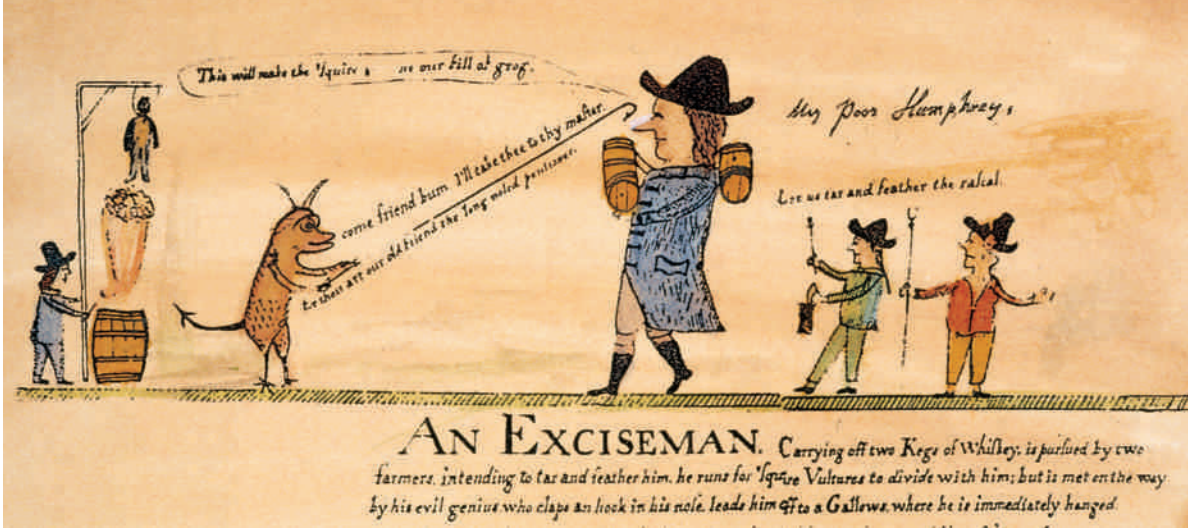 This will make the 'Squire, no our fill of grog.
My Poor Humphrey,
come friend bum I'll take thee to thy master.
art our old friend the long nosed
Let us tar and feather the rascal.
AN EXCISEMAN, Carrying off two Kegs of Whiskey, is pursued by two
farmers, intending to tar and feather him, he runs for 'Squire Vultures to divide with him; but is met on the way
by his evil genius who claps an hook in his nose, leads him off to a Gallows, where he is immediately hanged